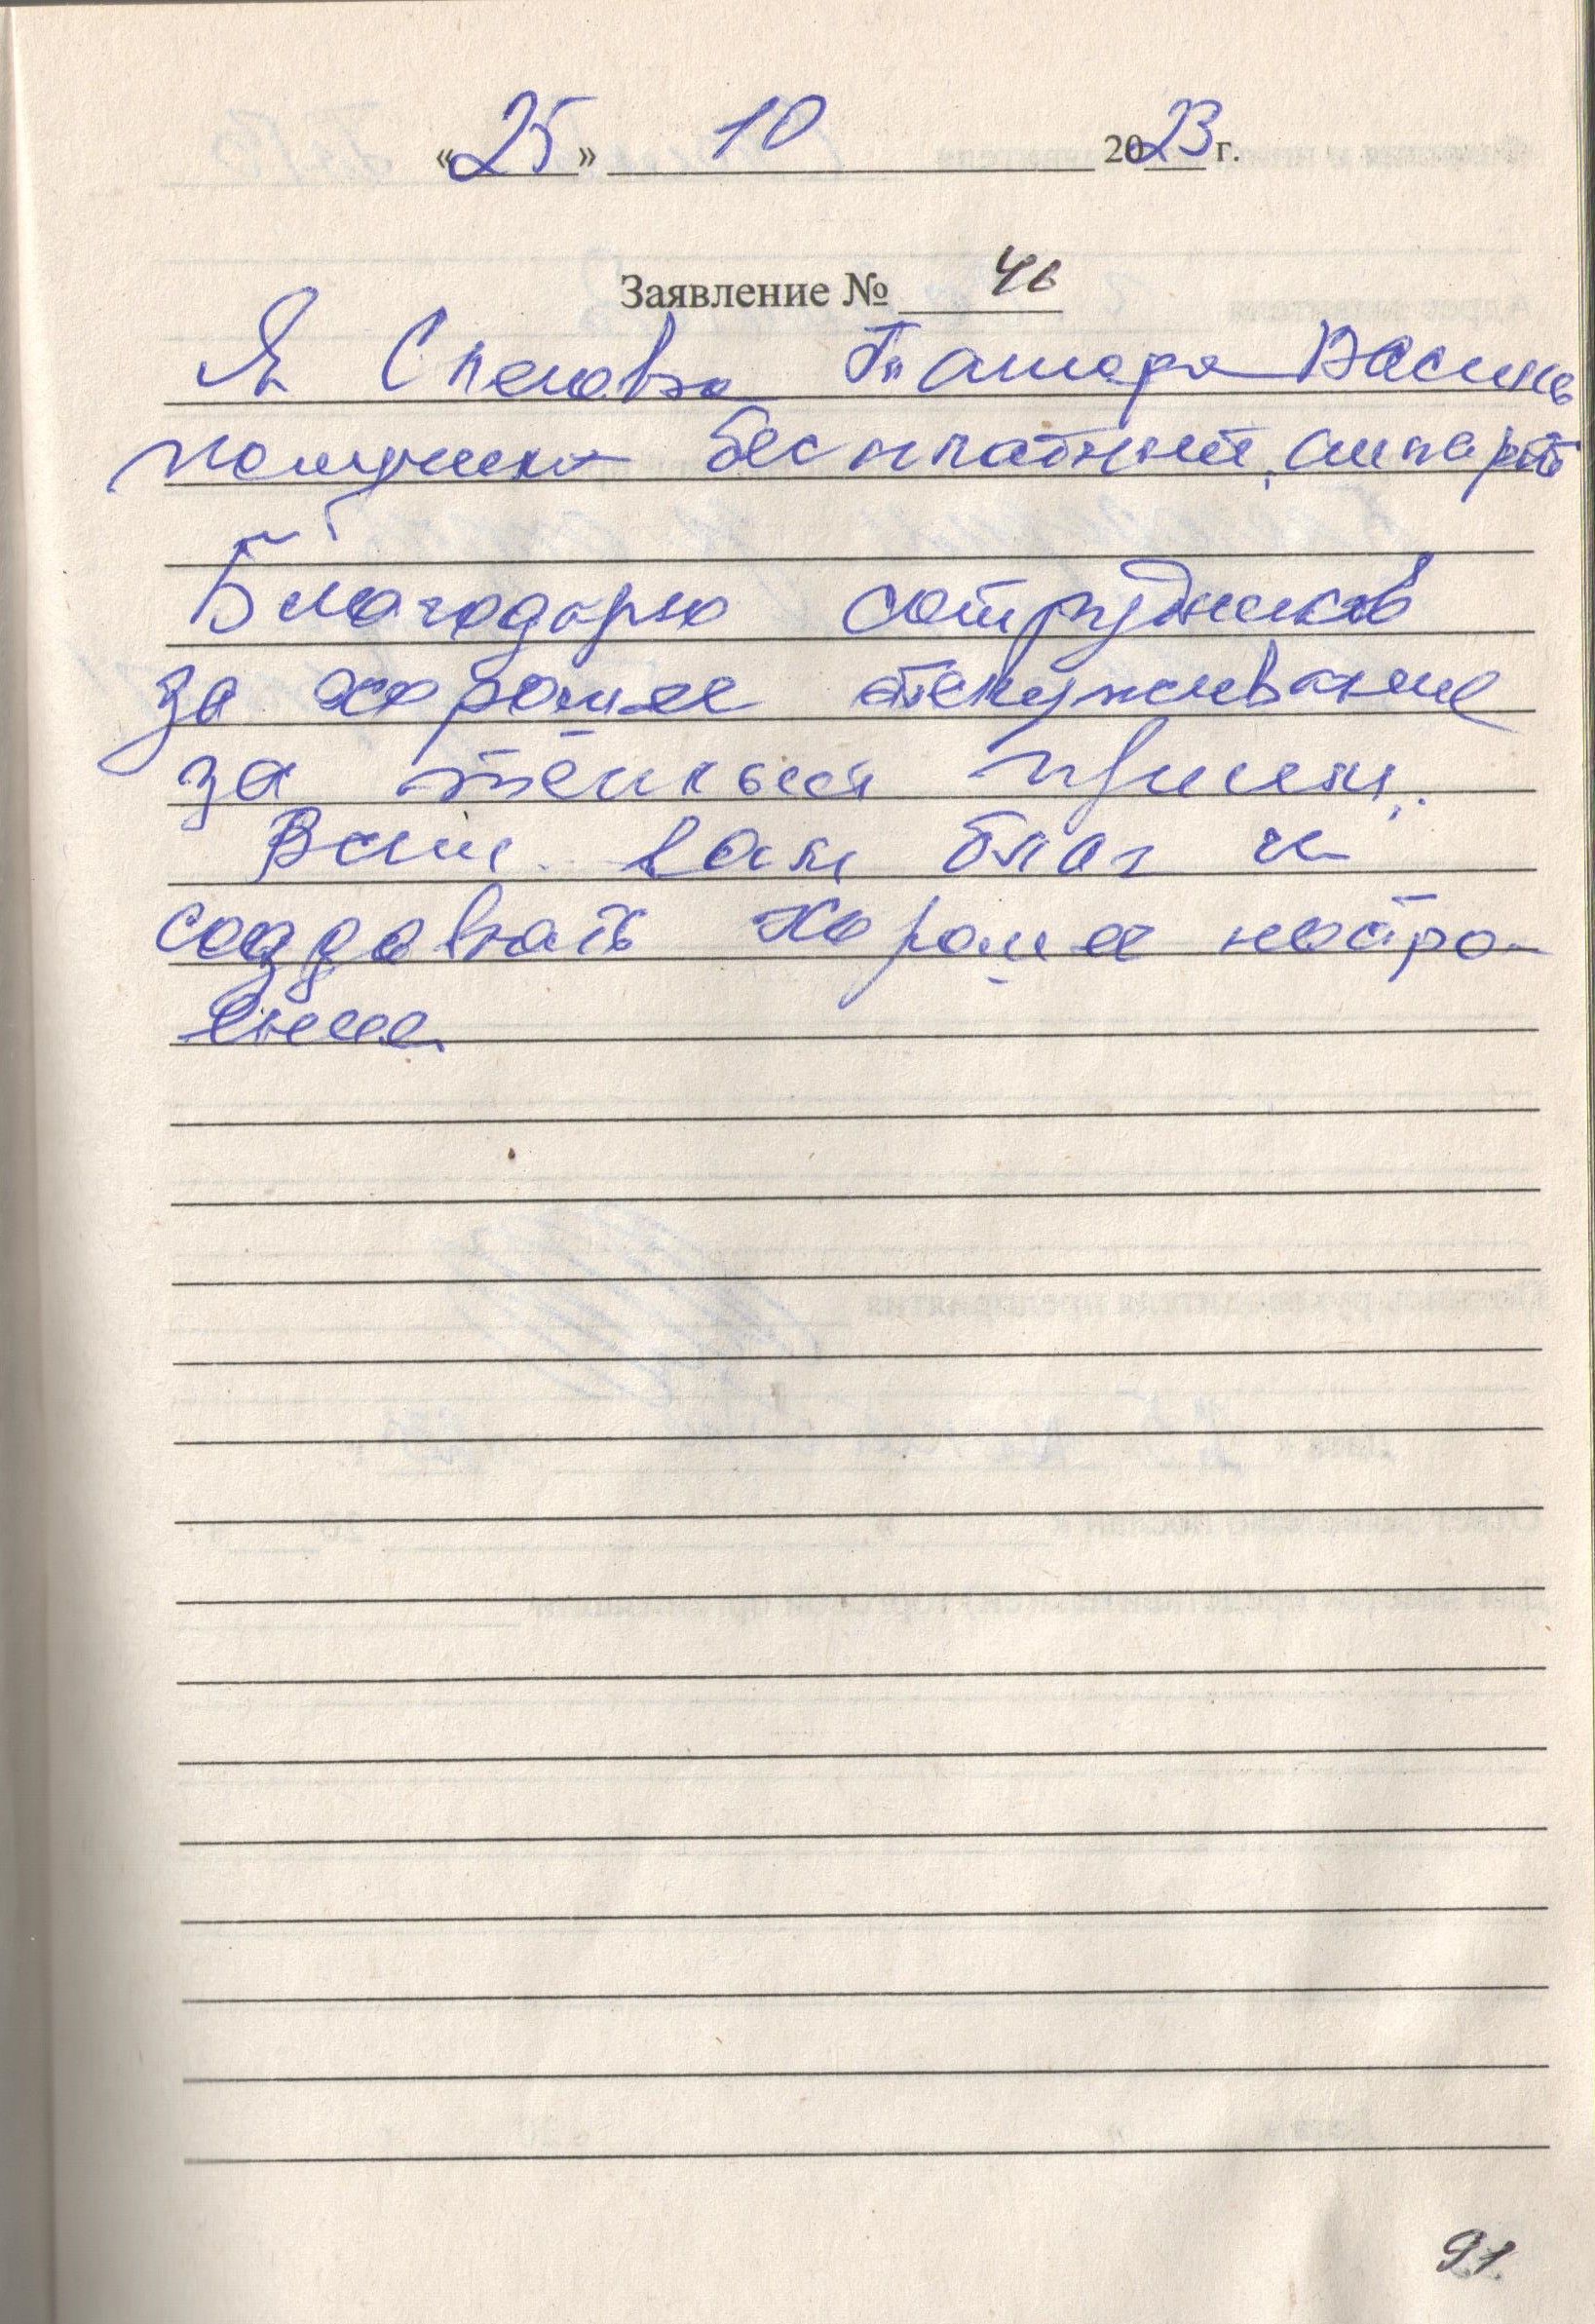 «25» 10 2023 г.
Заявление № 46
Я Тамара Василь
получила бесплатный аппарат
Благодарю сотрудников
за хорошее обслуживание
за тёплый приём.
Всем вам благ и
создавать хорошее настро-
ение
91